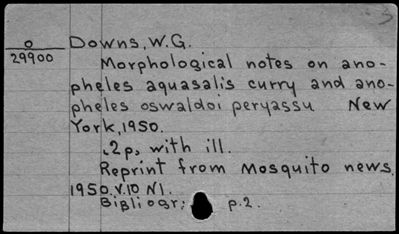 O Downs, W.G.
29900
Morphological notes on ano-
pheles aquasalis curry and ano-
pheles oswaldoi peryassu New
York, 1950.
.2p, with ill.
Reprint from Mosquito news.
1950.V.10 N1.
Bibliogr: p.2.